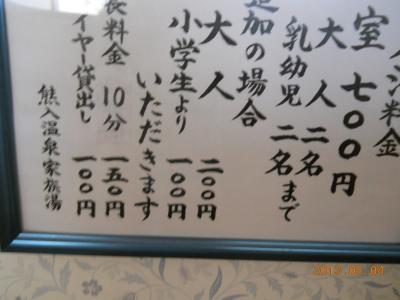 入浴料金
室 七〇〇円
大人二名
乳幼児 二名まで
追加の場合
大人 二〇〇円
小学生より 一〇〇円
いただきます
長料金 10分 一五〇円
イヤー貸出し 一〇〇円
熊入温泉家族湯
2012.05.04